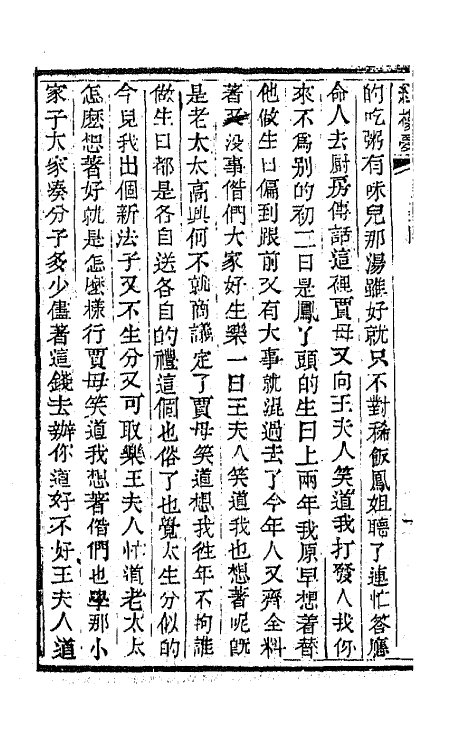 的吃粥有味兒那湯雖好就只不對稀飯鳳姐聽了連忙答應
命人去厨房傳話這裡賈母又向王夫人笑道我打發人找你
來不爲别的初二日是鳳丫頭的生日上兩年我原早想着替
他做生日偏到跟前又有大事就混過去了今年人又齊全料
著又没事偺們大家好生樂一日王夫人笑道我也想著呢旣
是老太太高興何不就商議定了賈母笑道想我徃年不拘誰
做生日都是各自送各自的禮這個也俗了也覺太生分似的
今兒我出個新法子又不生分又可取樂王夫人忙道老太太
怎麽想著好就是怎麽樣行賈母笑道我想著偺們也學那小
家子大家凑分子多少儘著這錢去辦你道好不好王夫人道